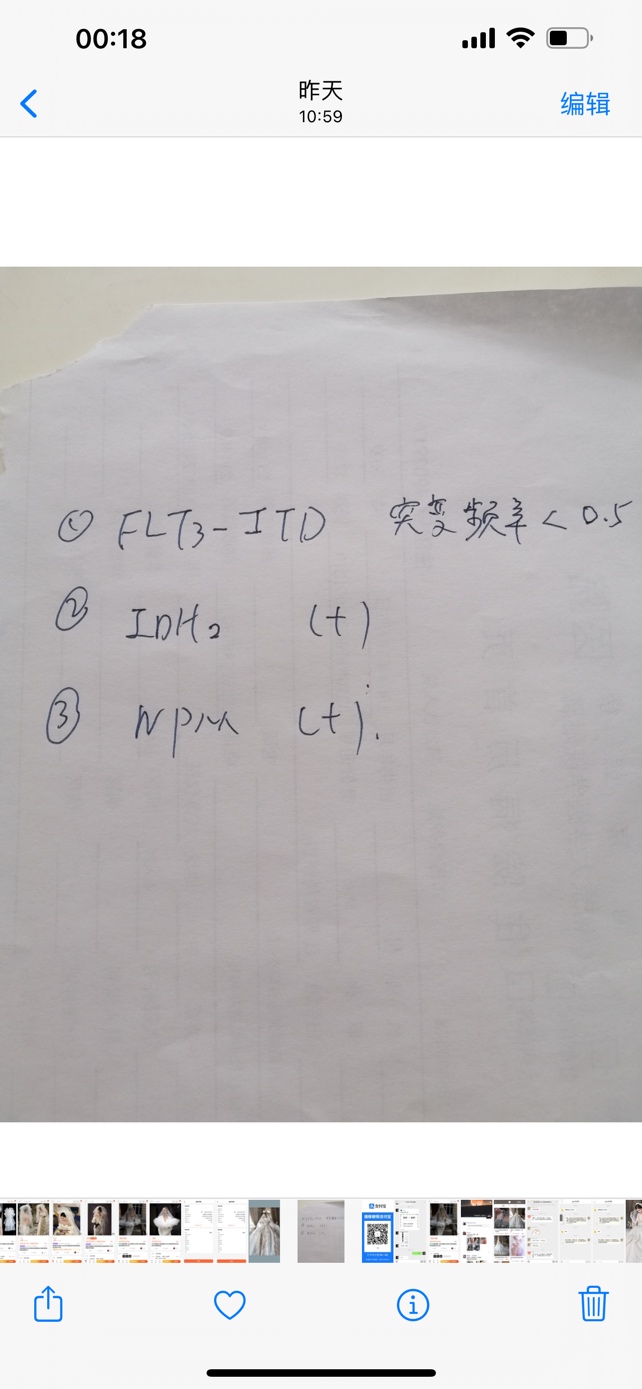 00:18
昨天
10:59
编辑
① FLT3-ITD 突变频率<0.5
② IDH2 (+)
③ NPM (+).